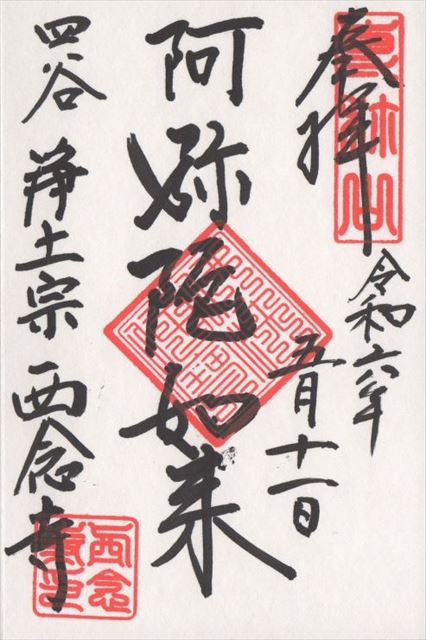 奉拝
令和六年
五月十一日
阿弥陀如来
四谷 浄土宗 西念寺